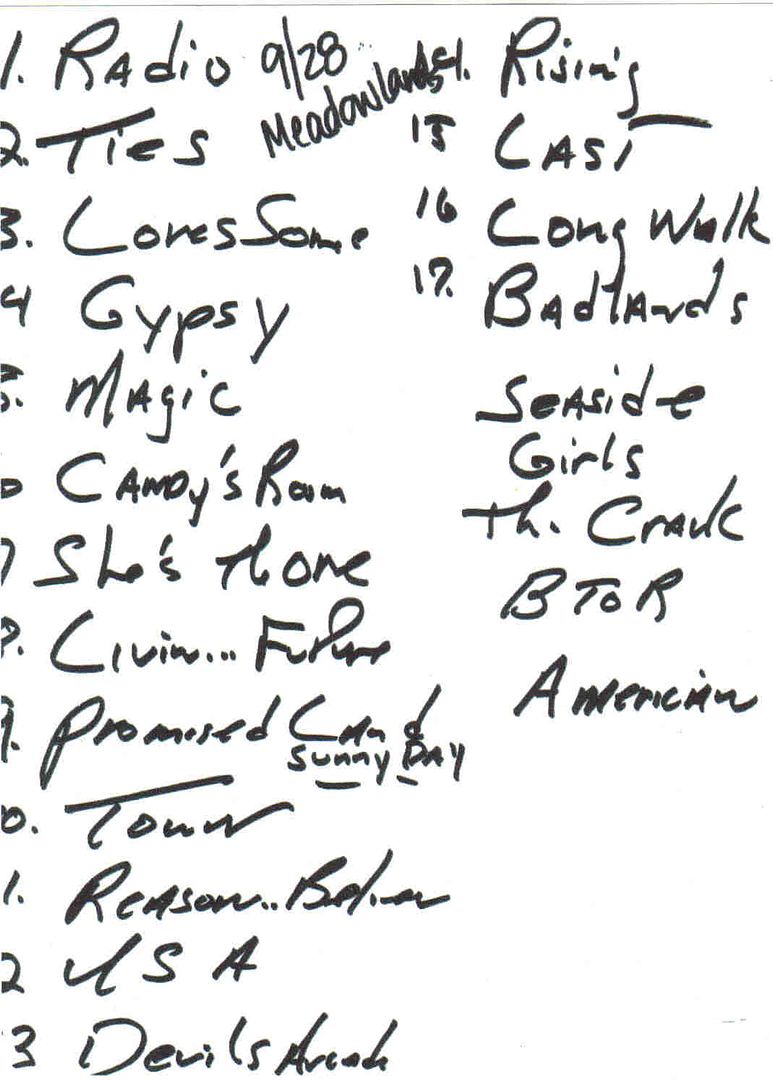 1. Radio 9/28
Meadowlands
2. Ties
3. LonesSome
4 Gypsy
5. Magic
6 Candy's Room
7 She's the one
8. Livin... Future
9. Promised Land
Sunny Day
0. Town
1. Reason.. Believe
2 USA
3 Devils Arcade
14. Rising
15 Last
16 Long Walk
17. Badlands
Seaside
Girls
Th. Crack
B To R
American